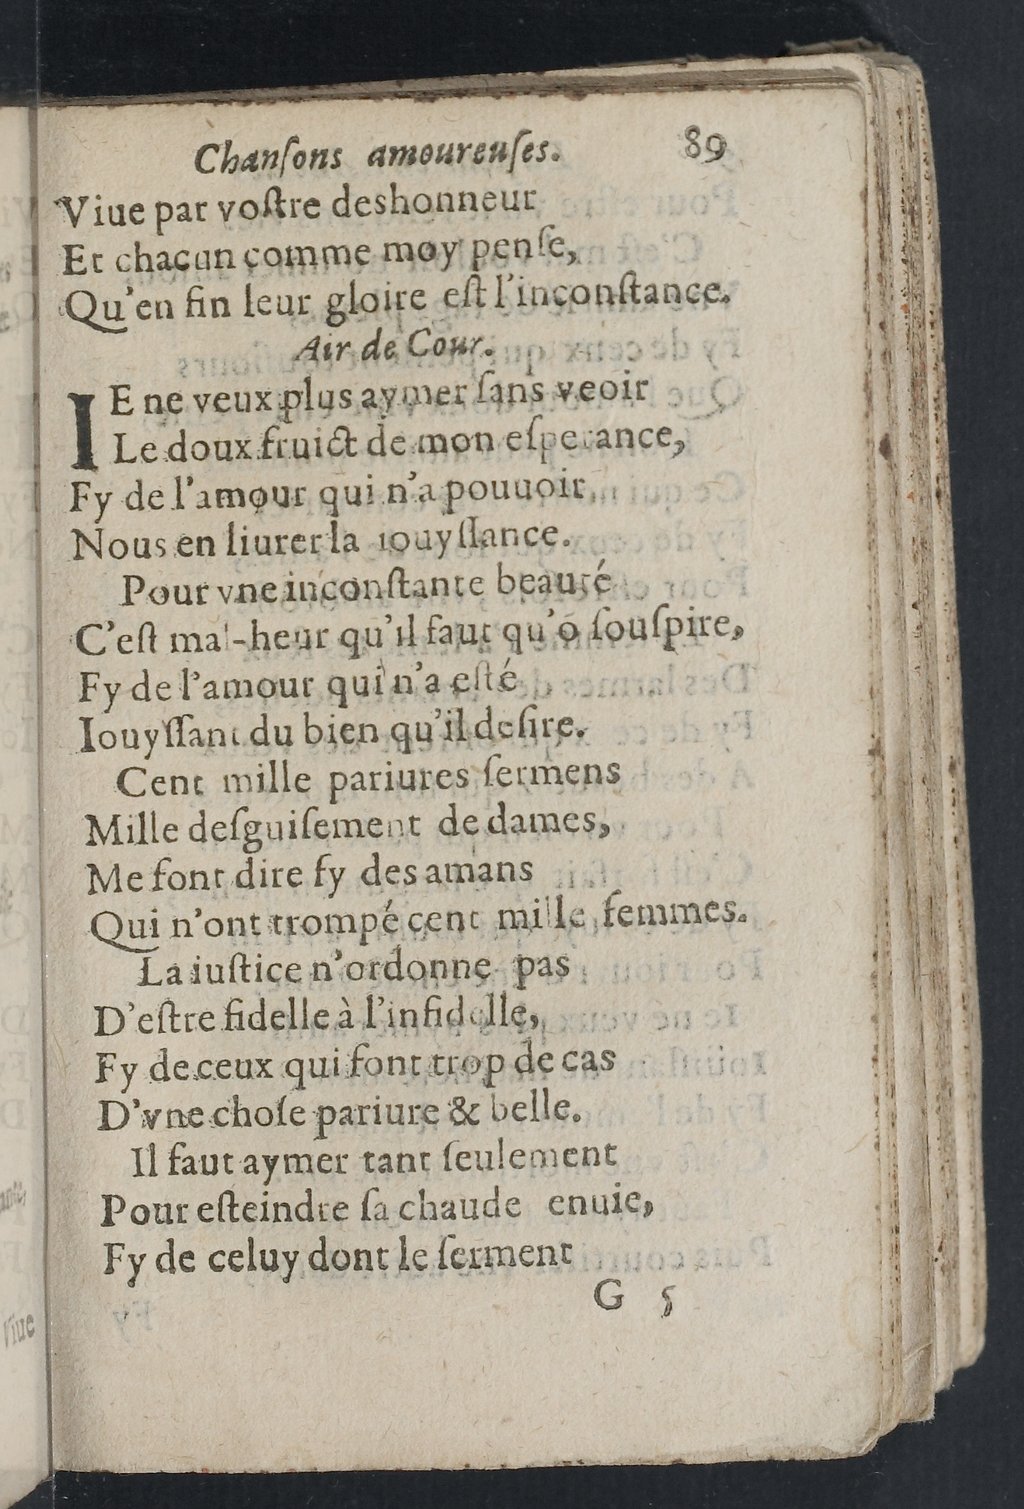 Chanſons amoureuſes. 89
Viue par voſtre deshonneur
Et chacun comme moy penſe,
Qu'en fin leur gloire eſt l'inconſtance.
Air de Cour.
IE ne veux plus aymer ſans veoir
Le doux fruict de mon eſperance,
Fy de l'amour qui n'a pouuoir
Nous en liurer la iouyſſance.
Pour vne inconſtante beauté
C'eſt mal-heur qu'il faut qu'õ ſouſpire,
Fy de l'amour qui n'a eſté
Iouyſſant du bien qu'il deſire.
Cent mille pariures ſermens
Mille deſguiſement de dames,
Me font dire fy des amans
Qui n'ont trompé cent mille femmes.
La iuſtice n'ordonne pas
D'eſtre fidelle à l'infidelle,
Fy de ceux qui font trop de cas
D'vne choſe pariure & belle.
Il faut aymer tant ſeulement
Pour eſteindre ſa chaude enuie,
Fy de celuy dont le ſerment
G 5
Viue